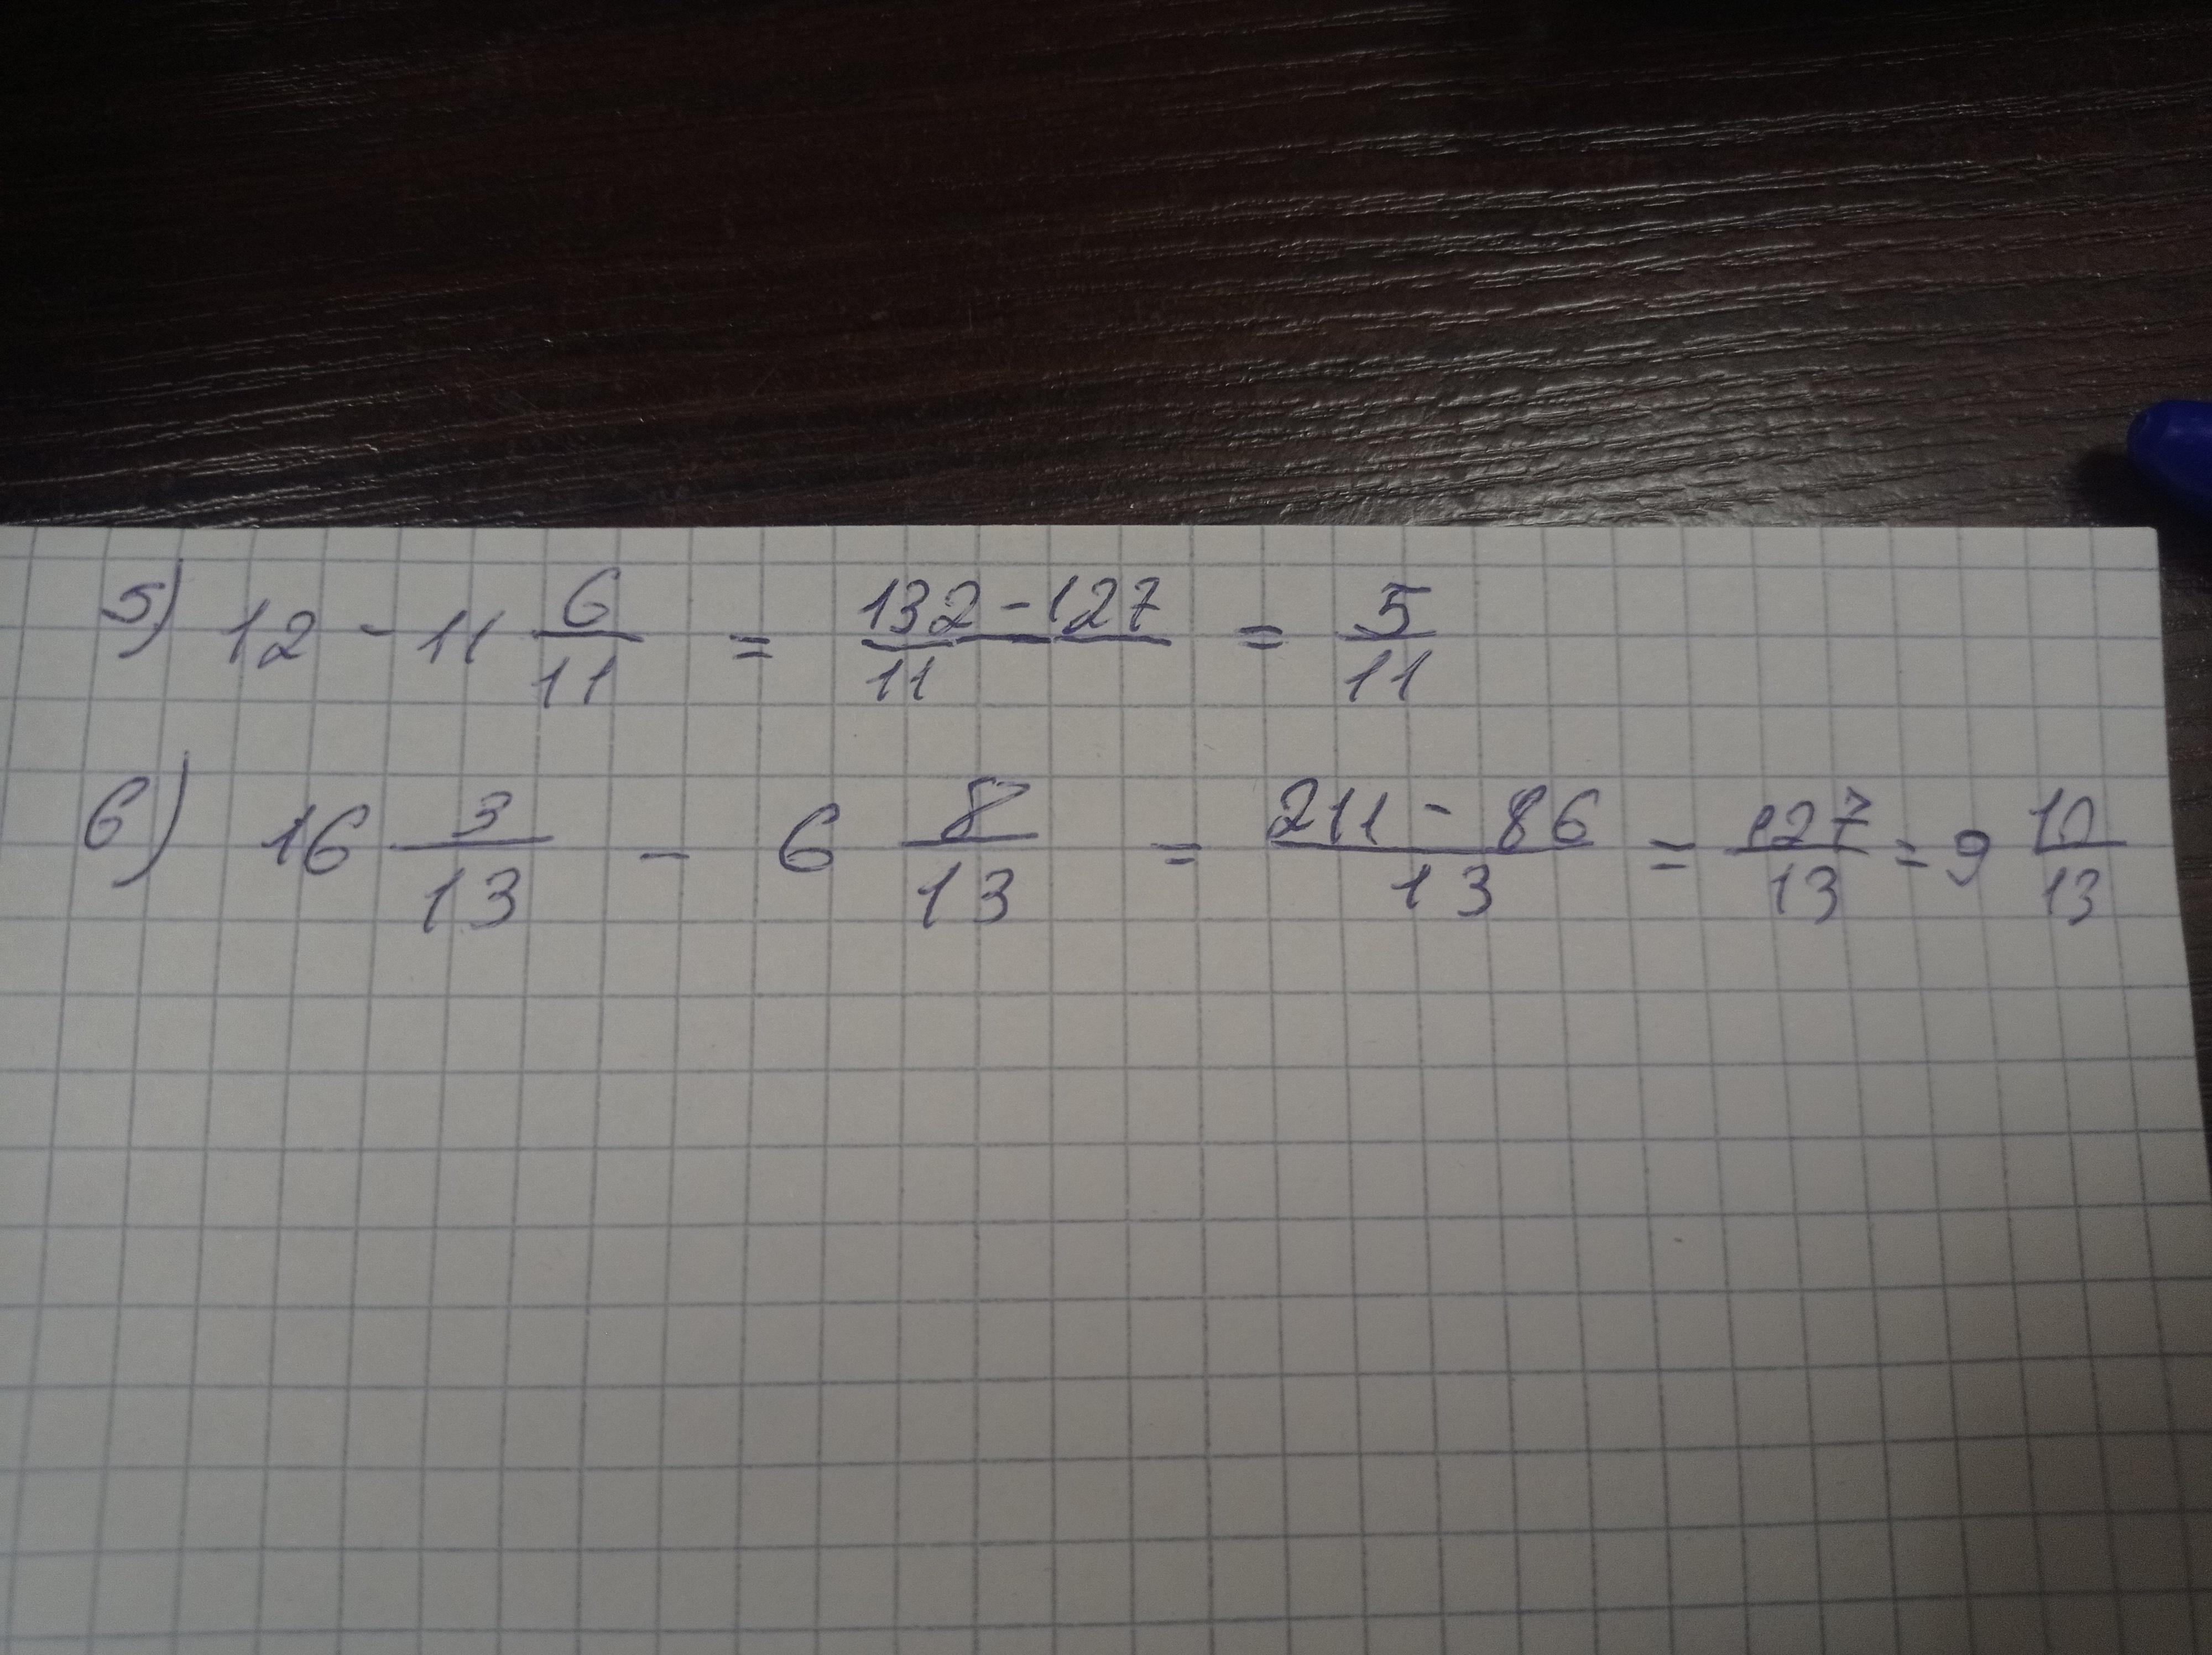 5) 12 - 11 6/11 = 132-127/11 = 5/11
6) 16 3/13 - 6 8/13 = 211-86/13 = 127/13 = 9 10/13